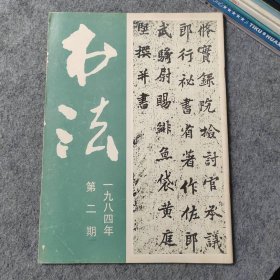 书法
一九八四年
第二期
修實録院檢討官承議
郎行祕書省著作佐郎
武騎尉賜緋魚袋黄庭
堅撰并書